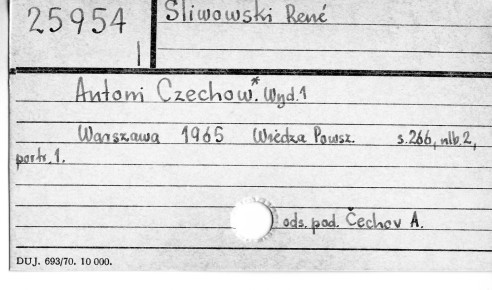 25954
I
Śliwowski René
Antoni Czechow.* Wyd.1
Warszawa 1965 Wiedza Powsz. s.266, nlb.2,
portr. 1.
ods. pod. Čechov A.
DUJ. 693/70. 10 000.